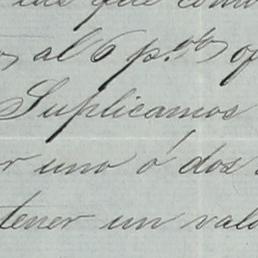 que como
al 6 p.% of
Suplicamos
r uno ó dos
tener un valo